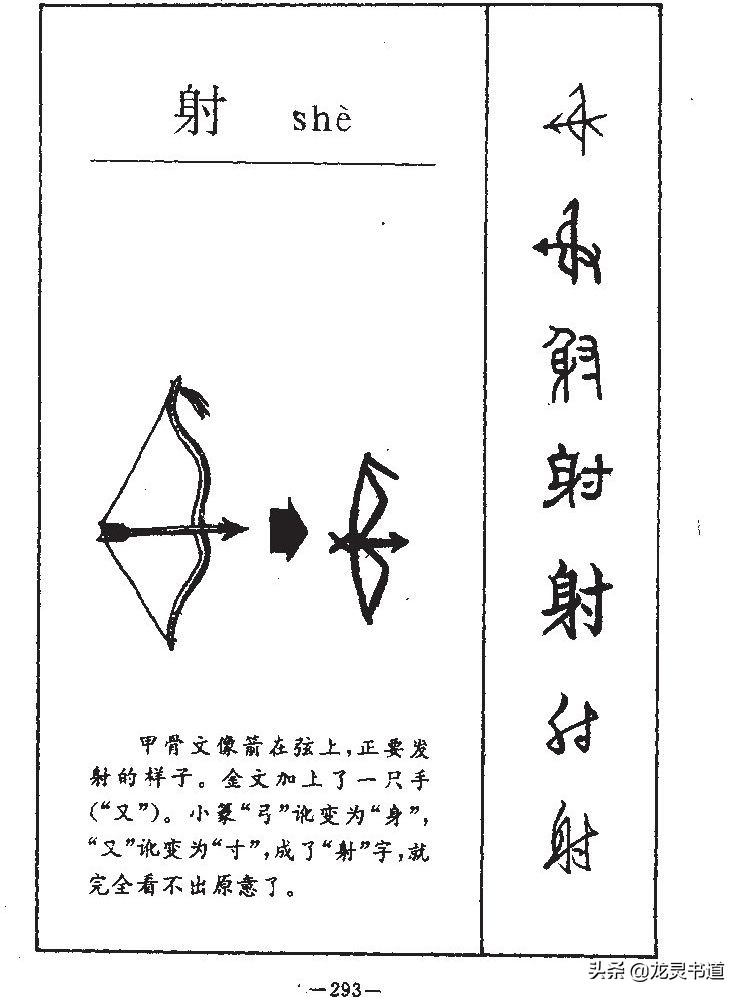 射 shè
甲骨文像箭在弦上,正要发
射的样子。金文加上了一只手
(“又”)。小篆“弓”讹变为“身”,
“又”讹变为“寸”,成了“射”字,就
完全看不出原意了。
射
射
射
射
射
射
射
—293—
头条 @龙灵书道